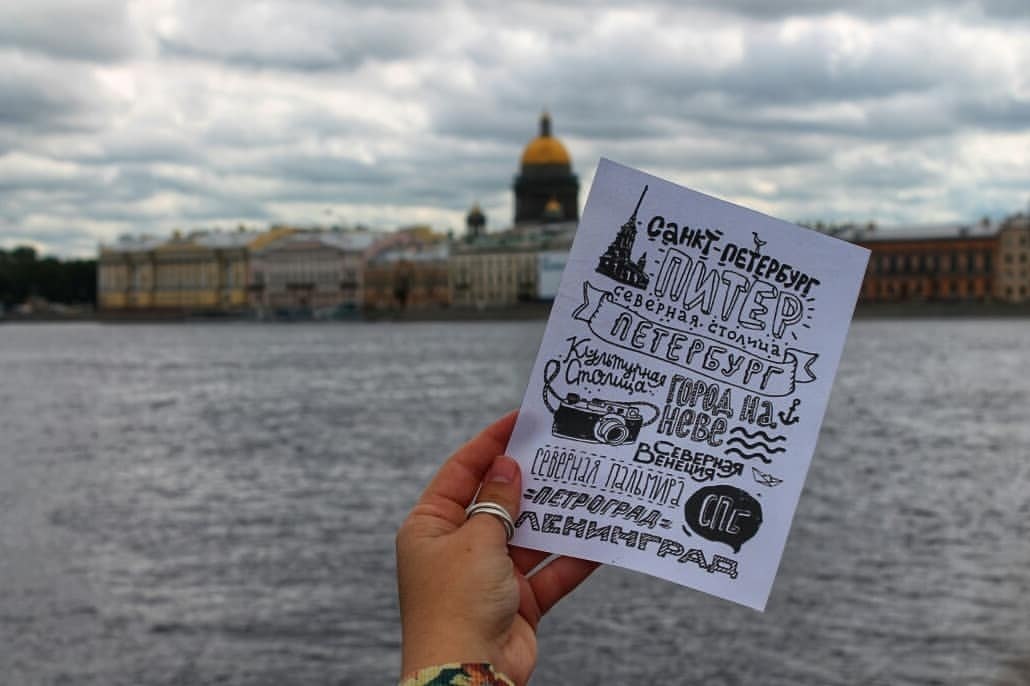 Санкт-Петербург
ПИТЕР
северная столица
ПЕТЕРБУРГ
Культурная
Столица
ГОРОД на
Неве
Северная
Венеция
СЕВЕРНАЯ ПАЛЬМИРА
СПб
=ПЕТРОГРАД=
ЛЕНИНГРАД